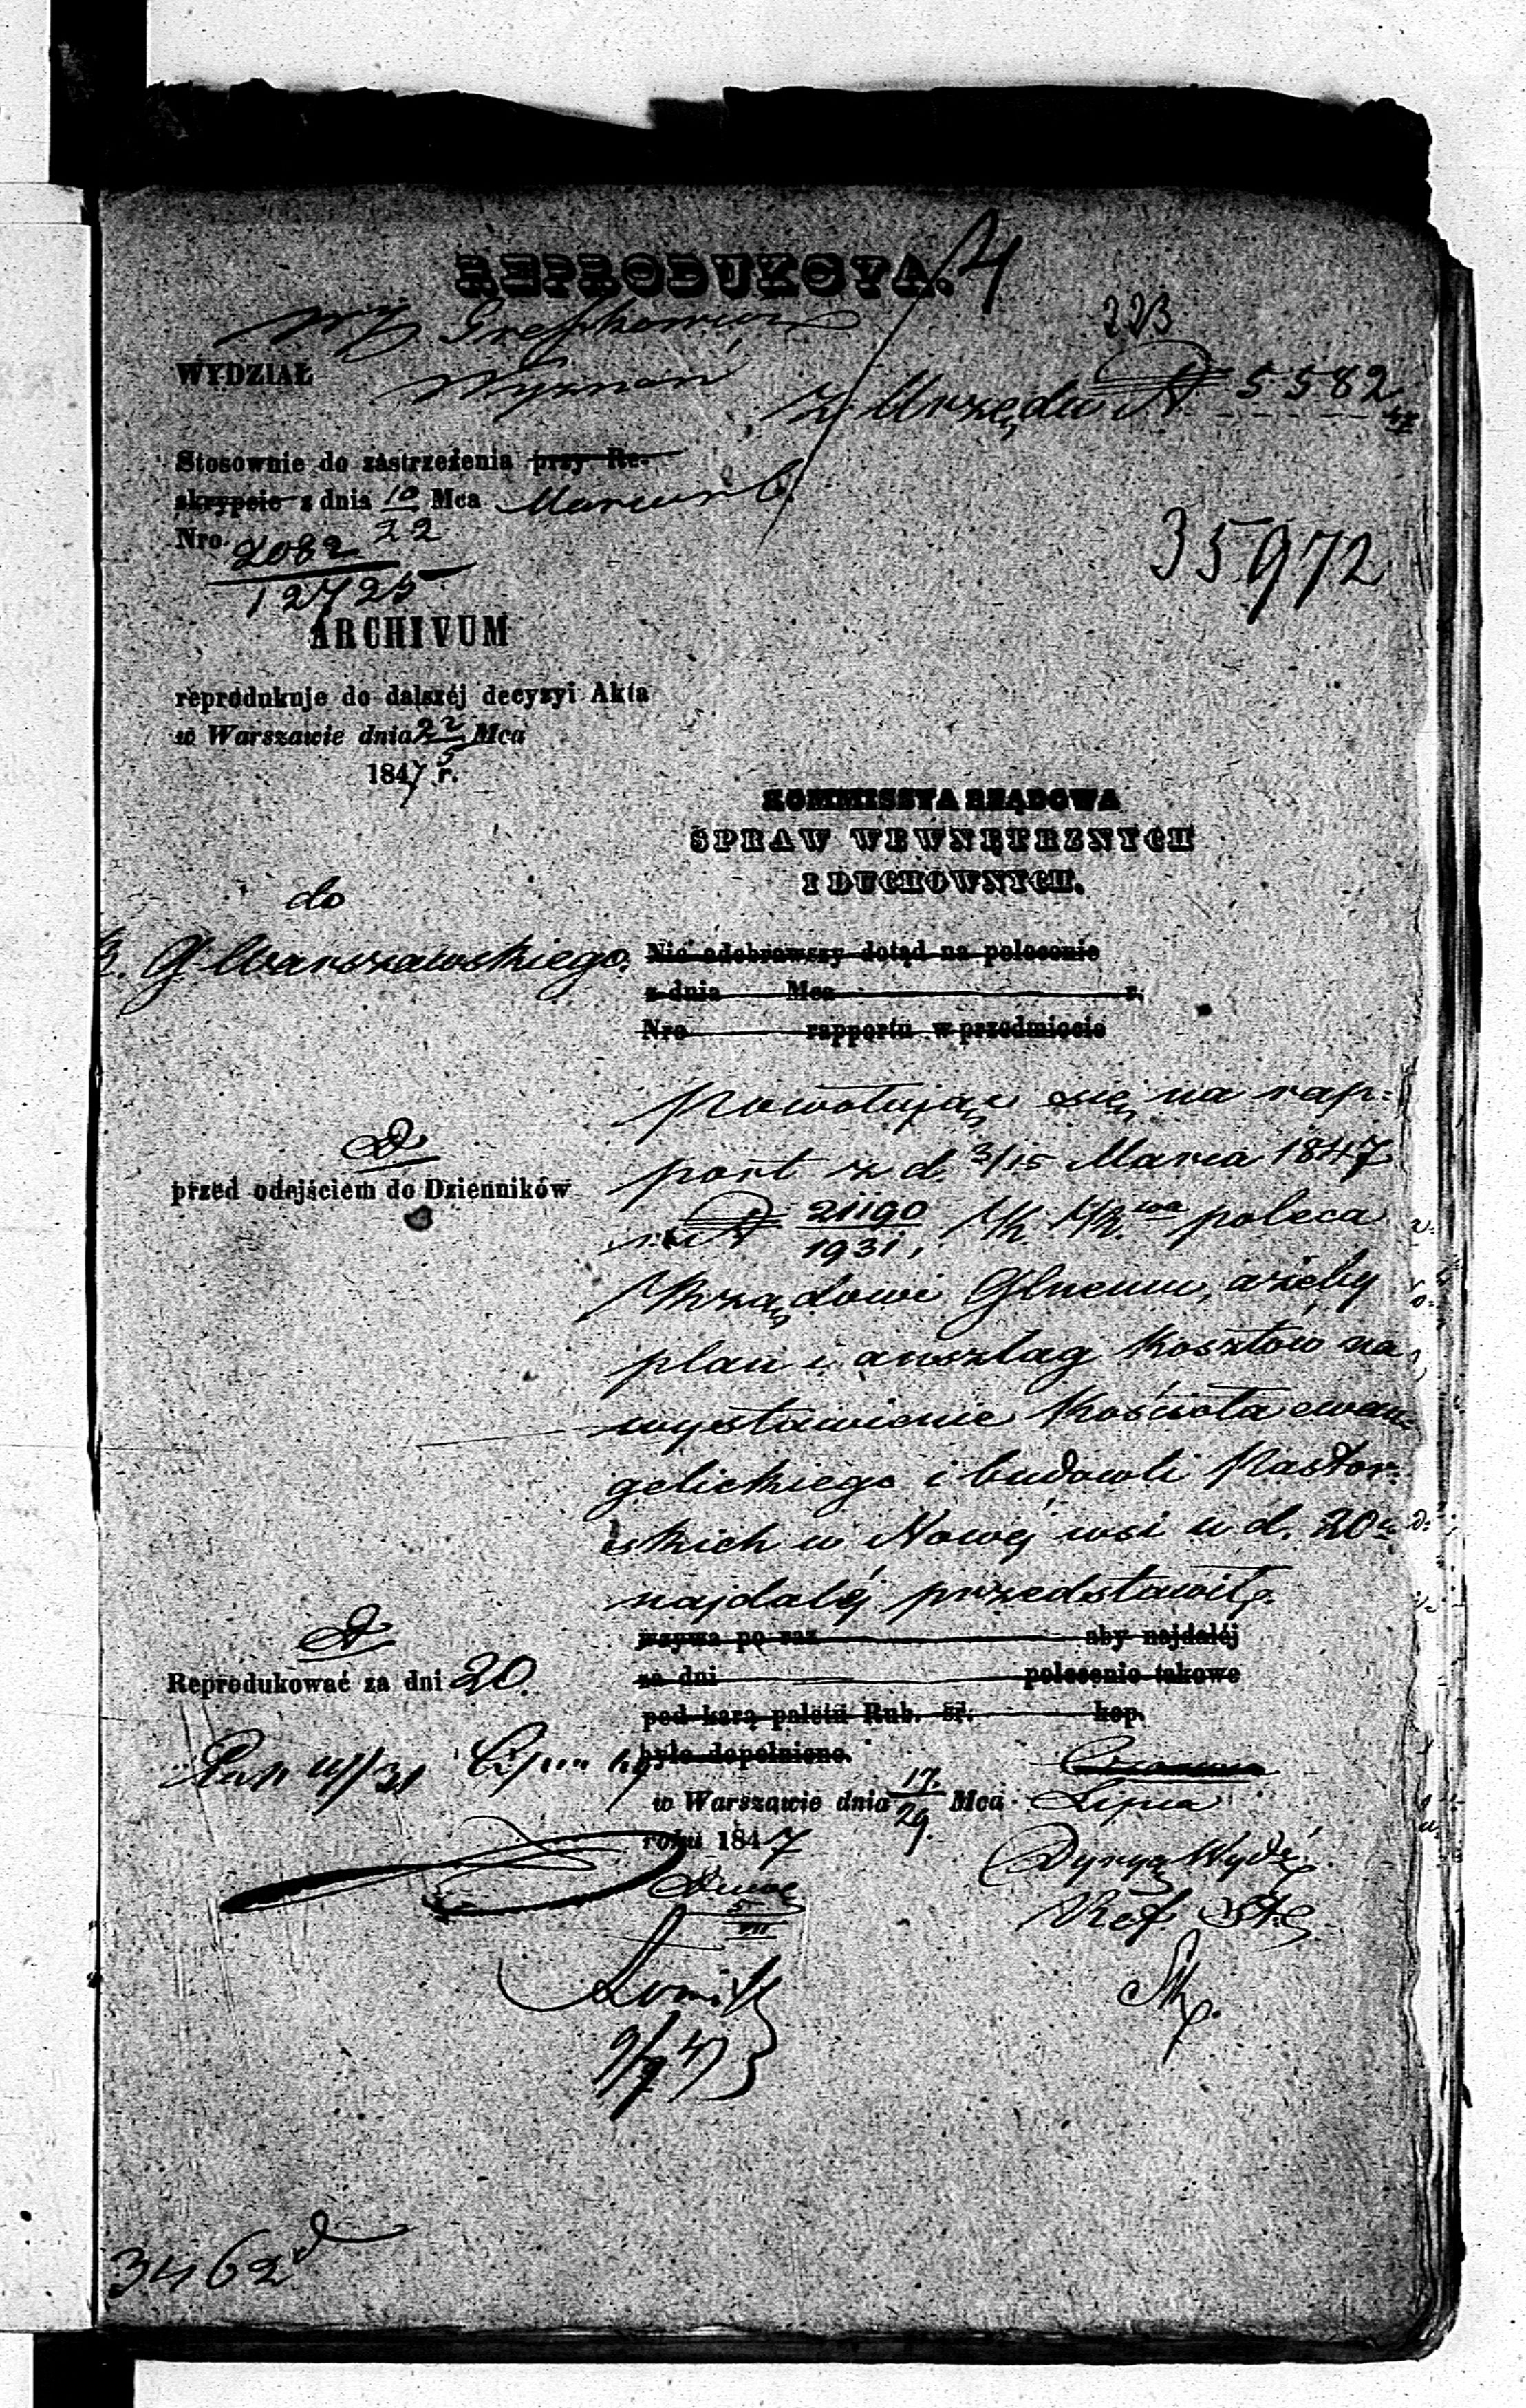 REPRODUKCYA.
223
WYDZIAŁ Wyznań
z Urzędu N 5582
Stosownie do zastrzeżenia przy Re-
skrypcie z dnia 10/22 Mca Marca
Nro. 2082/12725
35972
ARCHIVUM
reprodukuje do dalszéj decyzyi Akta
w Warszawie dnia 22/5 Mca
1847 r.
KOMMISSYA RZĄDOWA
SPRAW WEWNĘTRZNYCH
I DUCHOWNYCH.
do
R. G. Warszawskiego.
Nie odebrawszy dotąd na polecenie
z dnia Mca r.
Nro rapportu w przedmiocie
Powołując się na rap-
port z d. 3/15 Marca 1847
N 21190/1931, poleca
Rządowi Glnemu, ażeby
plan i anszlag kosztów na
wystawienie kościoła ewan-
gelickiego i budowli Pastor-
skich w Nowéj wsi w d. 20
najdaléj przedstawił.
przed odejściem do Dzienników
wzywa po raz aby najdaléj
za dni polecenie takowe
pod karą paletu Rub. sr. kop.
było dopełnione.
Reprodukować za dni 20.
w Warszawie dnia 17/29 Mca Lipca
roku 1847
Dyryg Wydz
Ref St.
3462